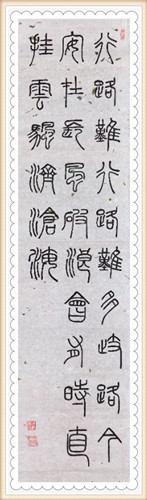 行路難行路難多歧路今
安在長風破浪會有時直
挂雲帆濟滄海